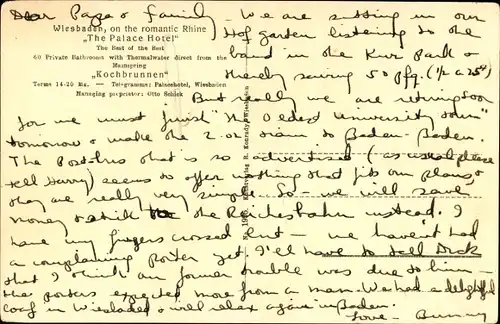 Dear Papa & Family - We are sitting in our
Hof garden listening to the
band in the Kur Park &
thereby saving 50 pfg. (½ a 25¢)
Wiesbaden, on the romantic Rhine
„The Palace Hotel"
The Best of the Best
60 Private Bathrooms with Thermalwater direct from the
Mainspring
„Kochbrunnen"
Terms 14-20 Mk. — Telegramms: Palasthotel, Wiesbaden
Managing proprietor: Otto Schick
But really we are retiring soon
for we must finish "The Oldest University Town"
tomorrow & make the 2. train to Baden-Baden.
The Post-bus that is so advertised (as usual please
tell Harry) seems to offer nothing that fits our plans &
they are really very simple. So - we will save
money & the Reichsbahn instead. I
have my fingers crossed but - we haven't had
a complaining porter yet. I'll have to tell Dick
that I think our former trouble was due to him -
the porters expected more from a man. We had a delightful
loaf in Wiesbaden & will relax again in Baden.
Love - Bunny
R. Konrady, Wiesbaden